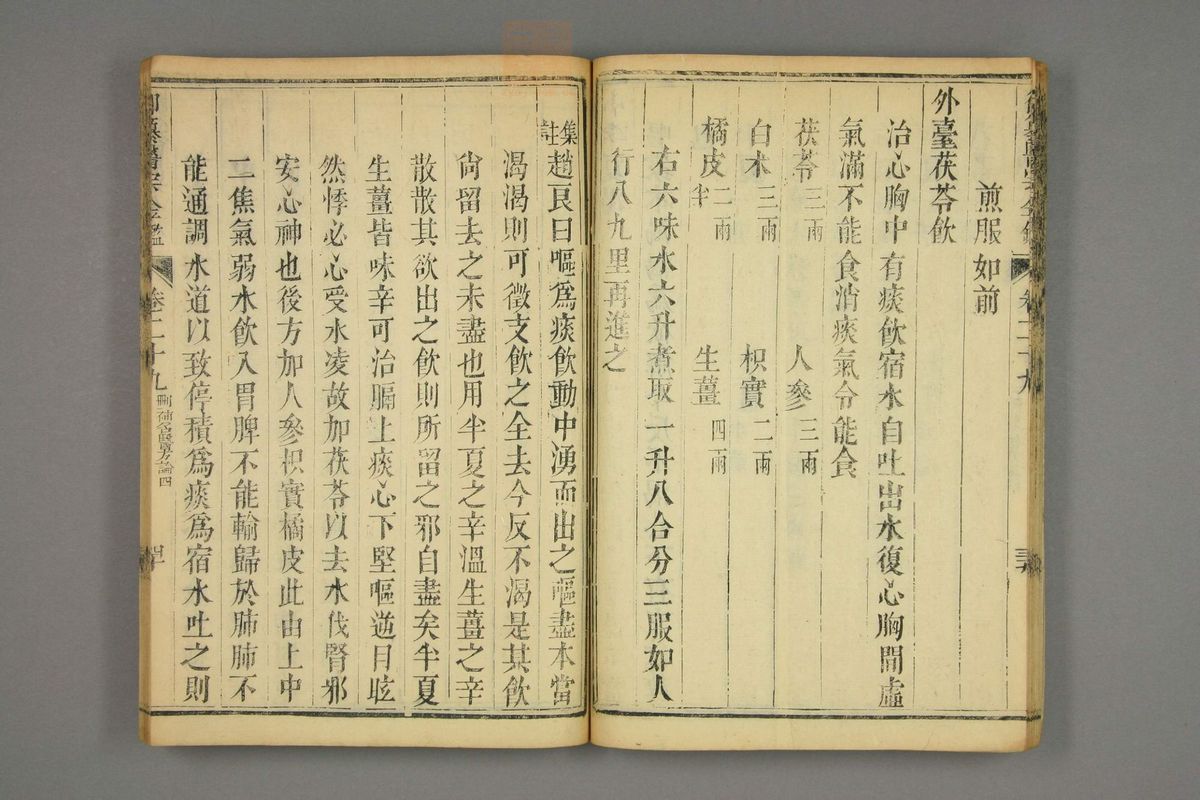 煎服如前
外臺茯苓飲
治心胸中有痰飲宿水自吐出水復心胸間虛
氣滿不能食消痰氣令能食
茯苓三兩 人參三兩
白朮三兩 枳實二兩
橘皮二兩半 生薑四兩
右六味水六升煮取一升八合分三服如人
行八九里再進之
集註趙良曰嘔為痰飲動中湧而出之嘔盡本當
渴渴則可徵支飲之全去今反不渴是其飲
尚留去之未盡也用半夏之辛溫生薑之辛
散散其欲出之飲則所留之邪自盡矣半夏
生薑皆味辛可治膈上痰心下堅嘔逆目眩
然悸必心受水凌故加茯苓以去水伐腎邪
安心神也後方加人參枳實橘皮此由上中
二焦氣弱水飲入胃脾不能輸歸於肺肺不
能通調水道以致停積為痰為宿水吐之則
御纂醫宗金鑑 卷二十九 刪補名醫方論四